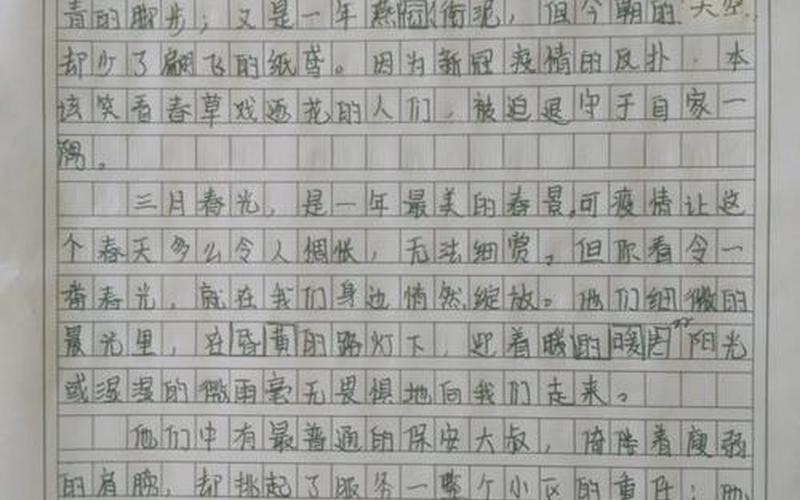 青的脚步；又是一年燕回衔泥，但今朝的天空，
却少了翩飞的纸鸢。因为新冠疫情的反扑，本
该笑看春草戏逐花的人们，被迫退守于自家一
隅。
三月春光，是一年最美的春景，可疫情让这
个春天多么令人惆怅，无法细赏。但你看令一
番春光，就在我们身边悄然绽放。他们细微的
晨光里，在昏黄的路灯下，迎着暖的暖阳光
或湿湿的微雨毫无畏惧地向我们走来。
他们中有最普通的保安大叔，倚靠着瘦弱
的肩膀，却挑起了服务一整个小区的重任；